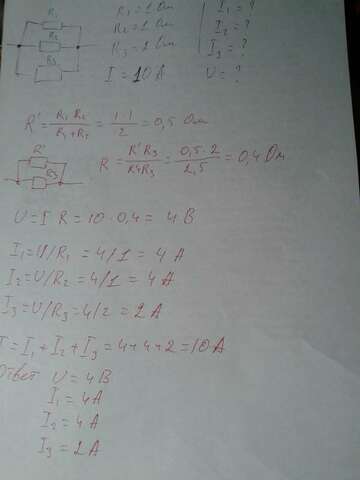 R₁ R₁ = 1 Ом I₁ = ?
R₂ R₂ = 1 Ом I₂ = ?
R₃ R₃ = 2 Ом I₃ = ?
I = 10 А U = ?
R' = R₁ R₂ / R₁ + R₂ = 1·1 / 2 = 0,5 Ом
R'
R₃
R = R' R₃ / R'+R₃ = 0,5·2 / 2,5 = 0,4 Ом
U = I R = 10 · 0,4 = 4 В
I₁ = U/R₁ = 4/1 = 4 А
I₂ = U/R₂ = 4/1 = 4 А
I₃ = U/R₃ = 4/2 = 2 А
I = I₁ + I₂ + I₃ = 4+4+2 = 10 А
Ответ U = 4 В
I₁ = 4 А
I₂ = 4 А
I₃ = 2 А